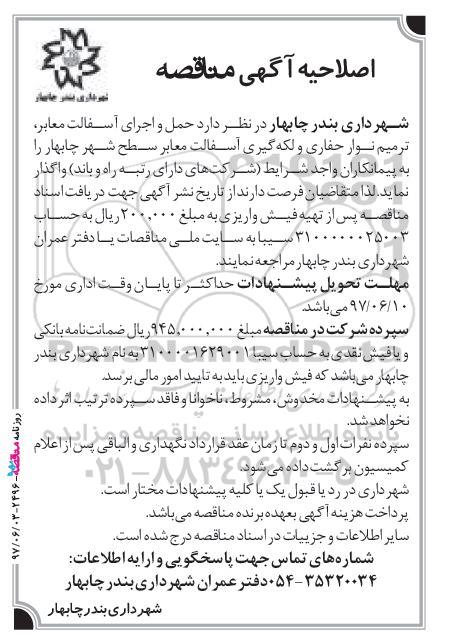 شهرداری بندر چابهار
اصلاحیه آگهی مناقصه
شهرداری بندر چابهار در نظر دارد حمل و اجرای آسفالت معابر،
ترمیم نوار حفاری و لکه گیری آسفالت معابر سطح شهر چابهار را
به پیمانکاران واجد شرایط (شرکت‌های دارای رتبه راه و باند) واگذار
نماید. لذا متقاضیان فرصت دارند از تاریخ نشر آگهی جهت دریافت اسناد
مناقصه پس از تهیه فیش واریزی به مبلغ ۲۰۰,۰۰۰ ریال به حساب
۳۱۰۰۰۰۰۰۲۵۰۰۳ سیبا به سایت ملی مناقصات یا دفتر عمران
شهرداری بندر چابهار مراجعه نمایند.
مهلت تحویل پیشنهادات حداکثر تا پایان وقت اداری مورخ
۹۷/۰۶/۱۰ می‌باشد.
سپرده شرکت در مناقصه مبلغ ۹۴۵,۰۰۰,۰۰۰ ریال ضمانت نامه بانکی
و یا فیش نقدی به حساب سیبا ۳۱۰۰۰۰۱۶۲۹۰۰۱ به نام شهرداری بندر
چابهار می‌باشد که فیش واریزی باید به تایید امور مالی برسد.
به پیشنهادات مخدوش، مشروط، ناخوانا و فاقد سپرده ترتیب اثر داده
نخواهد شد.
سپرده نفرات اول و دوم تا زمان عقد قرارداد نگهداری و الباقی پس از اعلام
کمیسیون برگشت داده می‌شود.
شهرداری در رد یا قبول یک یا کلیه پیشنهادات مختار است.
پرداخت هزینه آگهی بعهده برنده مناقصه می‌باشد.
سایر اطلاعات و جزییات در اسناد مناقصه درج شده است.
شماره‌های تماس جهت پاسخگویی و ارایه اطلاعات:
۰۵۴-۳۵۳۲۰۰۳۴ دفتر عمران شهرداری بندر چابهار
شهرداری بندر چابهار
روزنامه مناقصه - ۲۴۹۶ - ۹۷/۰۶/۰۳
پایگاه اطلاع رسانی مناقصه و مزایده
۰۲۱-۸۸۳۴۹۶۷۰-۵